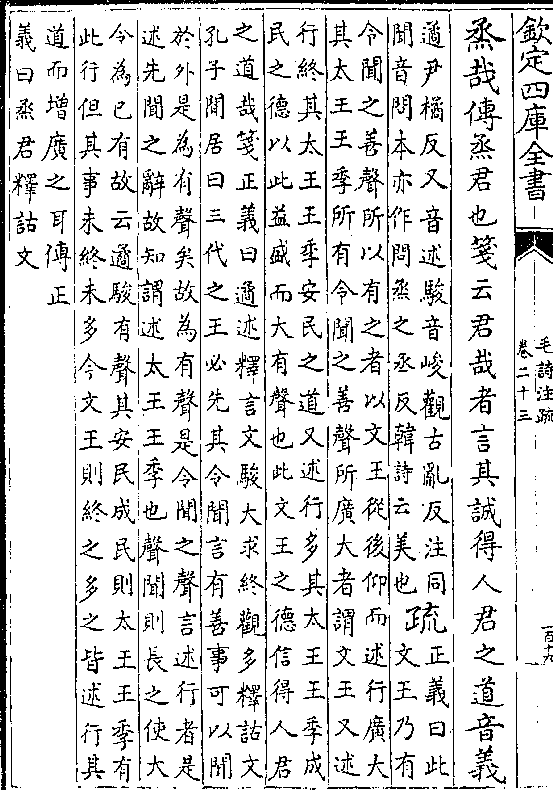 欽定四庫全書
毛詩注疏
卷二十三
百十九
烝哉傳烝君也箋云君哉者言其誠得人君之道音義
遹尹橘反又音述駿音峻觀古亂反注同
聞音問本亦作問烝之丞反韓詩云美也疏正義曰此
文王乃有
令聞之善聲所以有之者以文王從後仰而述行廣大
其太王王季所有令聞之善聲所廣大者謂文王又述
行終其太王王季安民之道又述行多其太王王季成
民之德以此益盛而大有聲也此文王之德信得人君
之道哉箋正義曰遹述釋言文駿大求終觀多釋詁文
孔子閒居曰三代之王必先其令聞言有善事可以聞
於外是為有聲矣故為有聲是令聞之聲言述行者是
述先聞之辭故知謂述太王王季也聲聞則長之使大
令為已有故云遹駿有聲其安民成民則太王王季有
此行但其事未終未多今文王則終之多之皆述行其
道而增廣之耳傳正
義曰烝君釋詁文